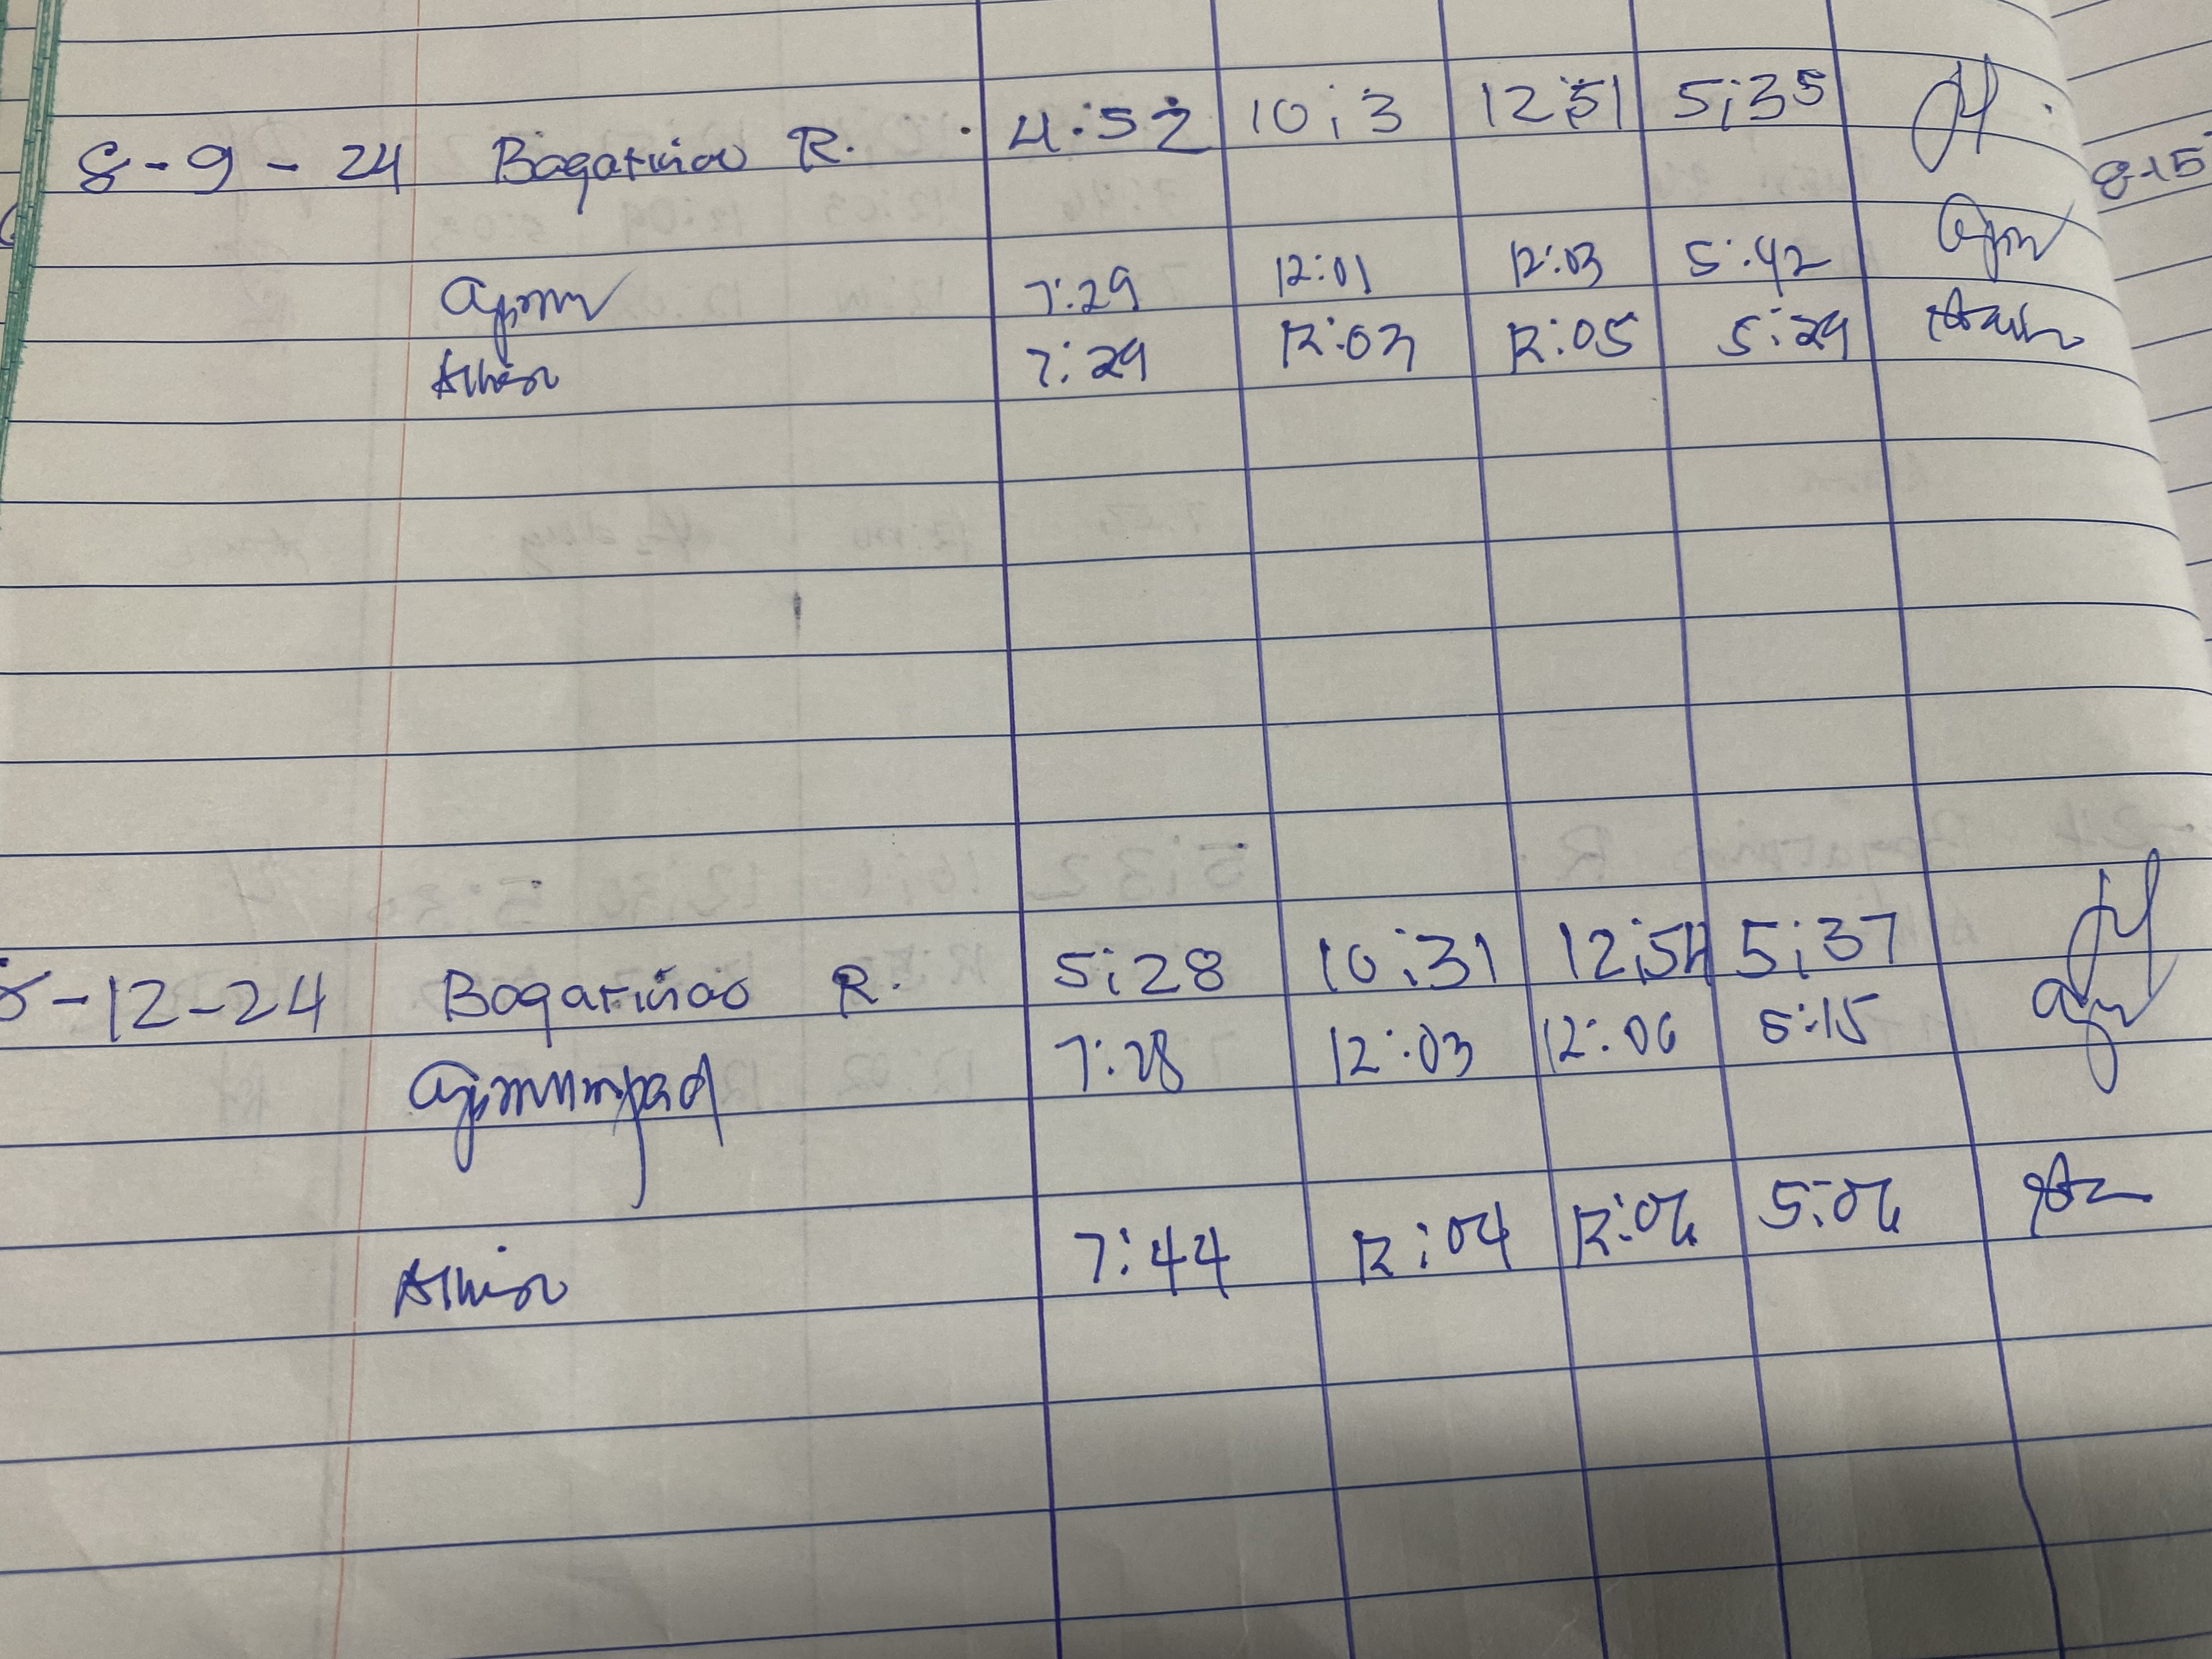 8-9-24 Bagarinao R. 4:52 10;3 12;51 5;35
8-15
7:29 12:01 12:03 5:42
7:29 12:03 12:05 5:29
8-12-24 Bagarinao R. 5;28 10;31 12;54 5;37
7:28 12:03 12:06 5:15
7:44 12:04 12:06 5:06